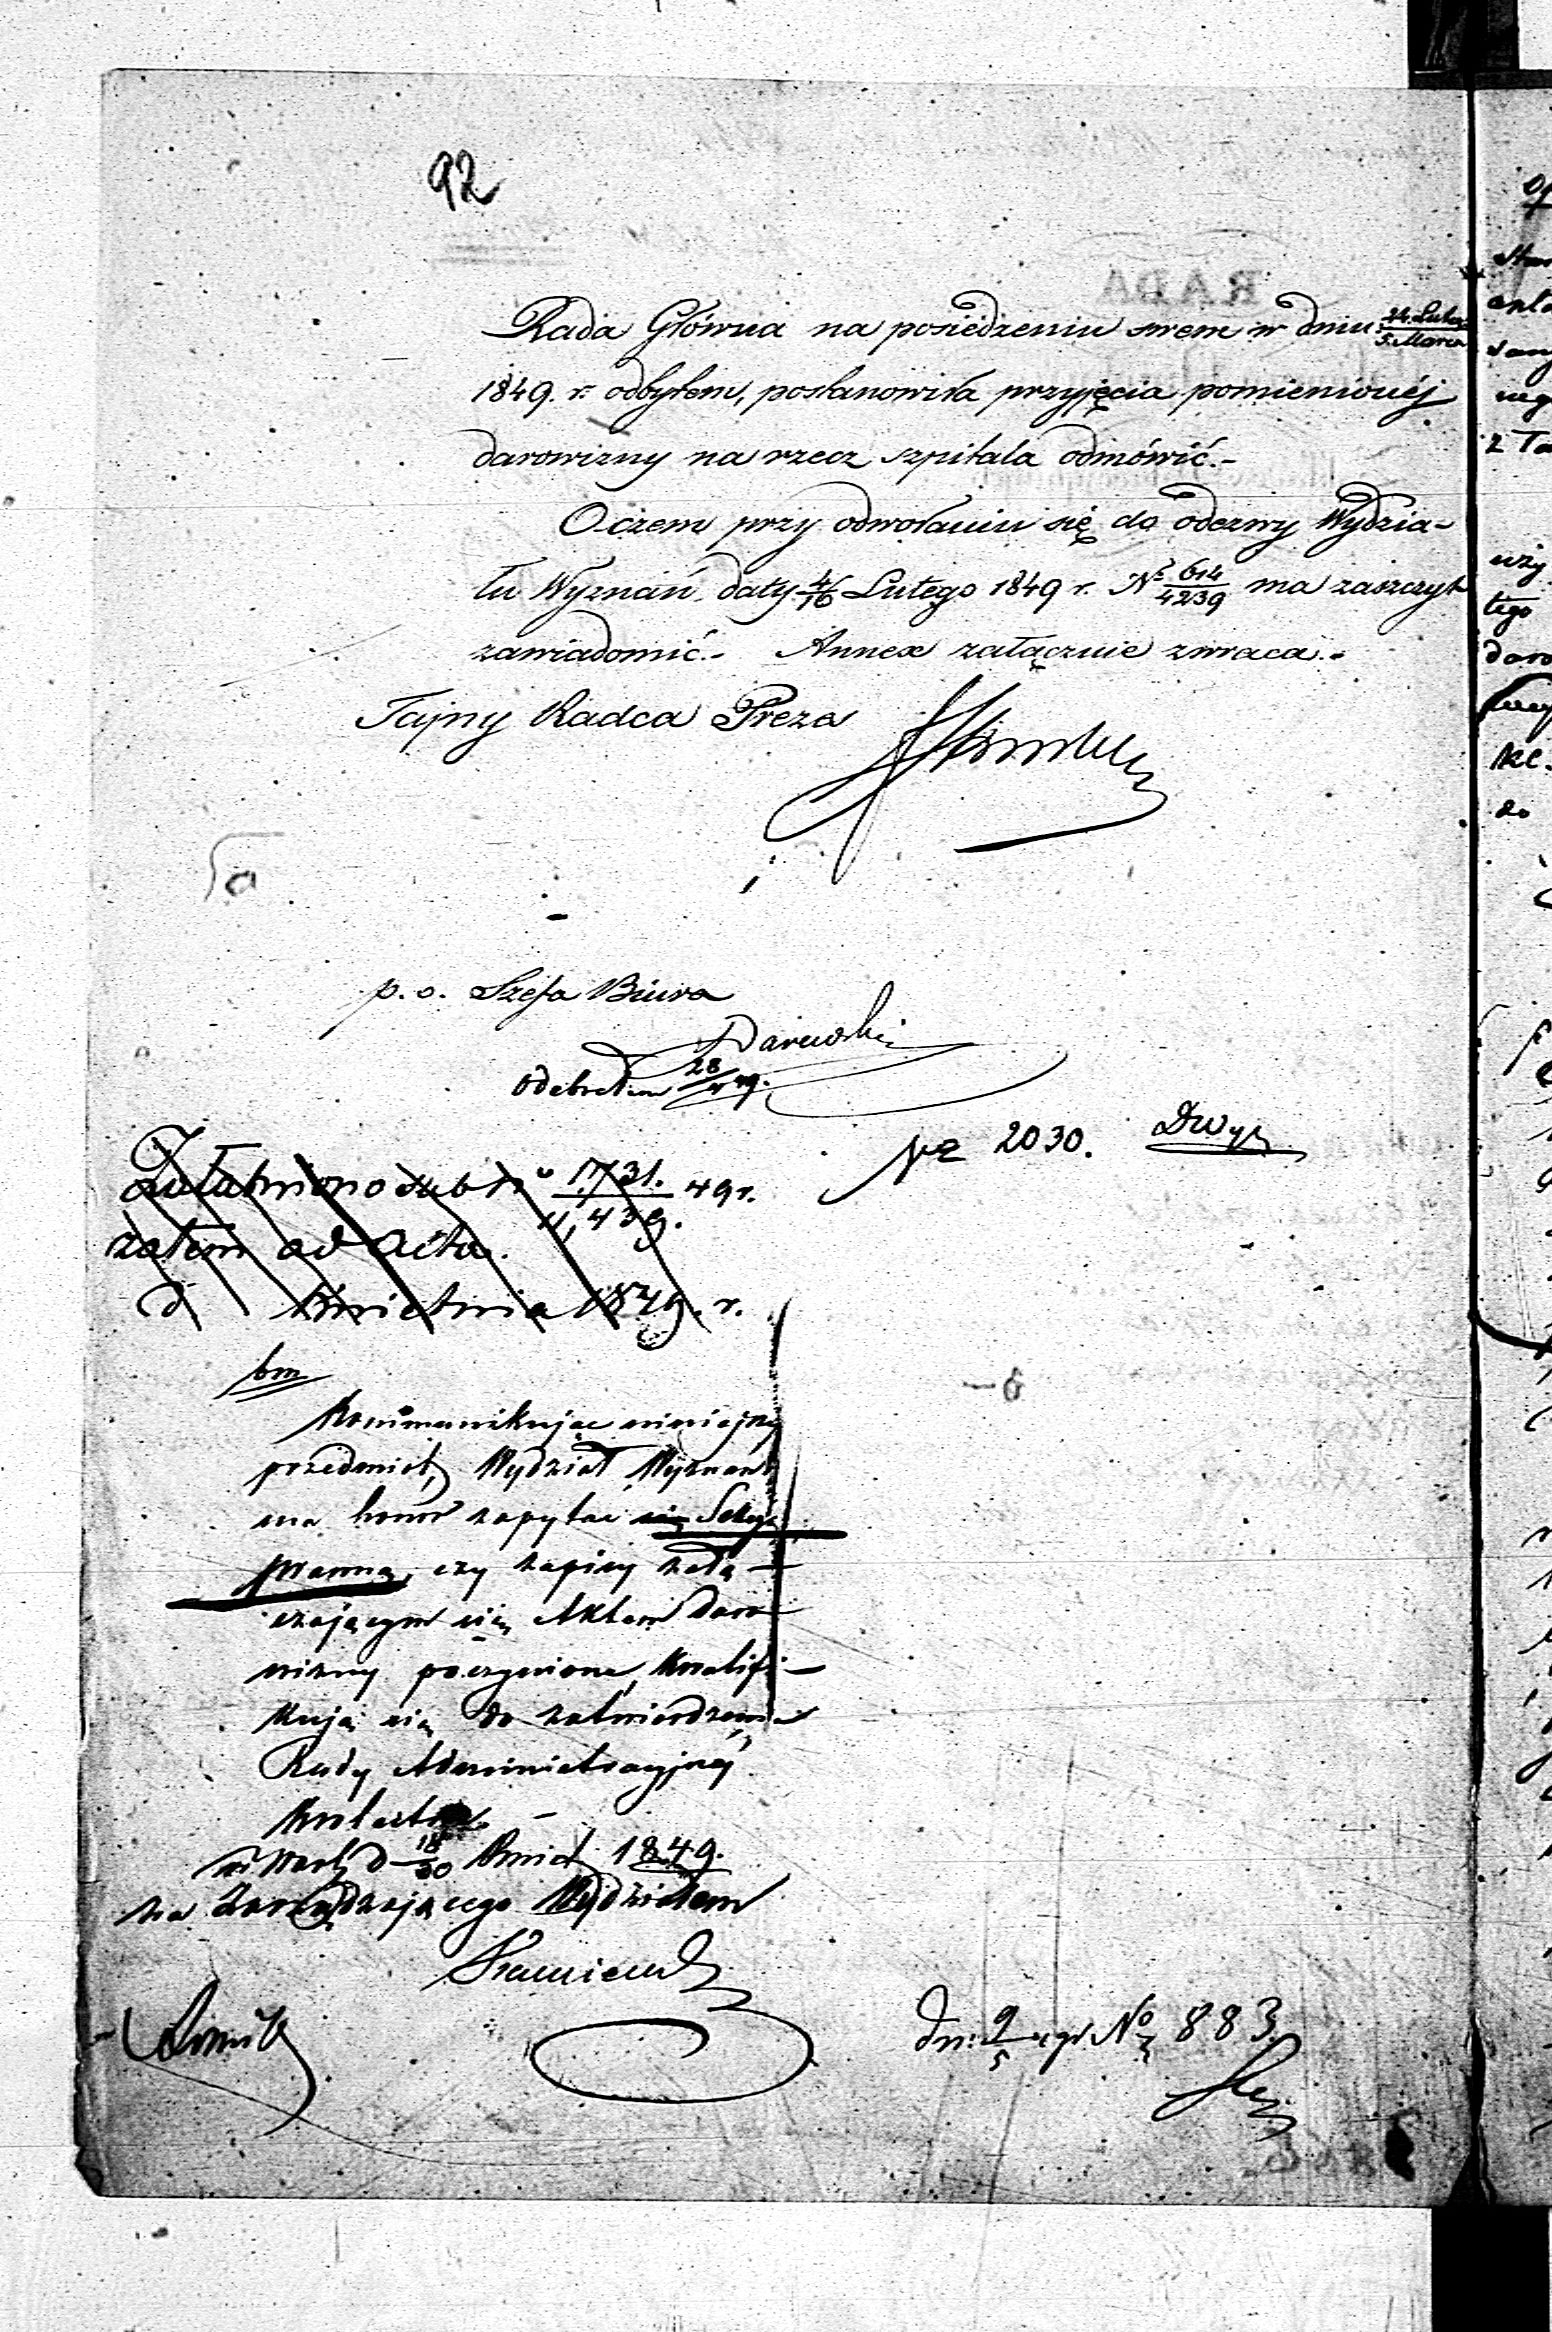 92
Rada Główna na posiedzeniu swem w dniu
1849. r: odbytem, postanowiła przyjęcia pomienionéj
darowizny na rzecz szpitala odmówić.-
O czem przy odwołaniu się do odezwy Wydzia-
łu Wyznań daty 4/16 Lutego 1849 r. No 614/4239 ma zaszczyt
zawiadomić.- Annex załącznie zwraca.-
Tajny Radca Prezes
p. o. Szefa Biura
Darewski
Odebrałem 28/4 49.
No 2030.
Załatwiono sub No 1731./11,439. 49 r.
zatem ad acta.
d Kwietnia 1849. r.
bm
Kommunikując niniejszy
przedmiot, Wydział Wyznań
ma honor zapytać się Sekcyi
prawną, czy zapisy załą-
czającym się Aktem daro-
wizny poczynione, kwalifi-
kują się do zatwierdzenia
Rady Administracyjnéj
Królestwa. -
w Warsz d 18/30 Kwiet. 1849.
za Zarządzającego Wydziałem
dn: 9/5 No 883